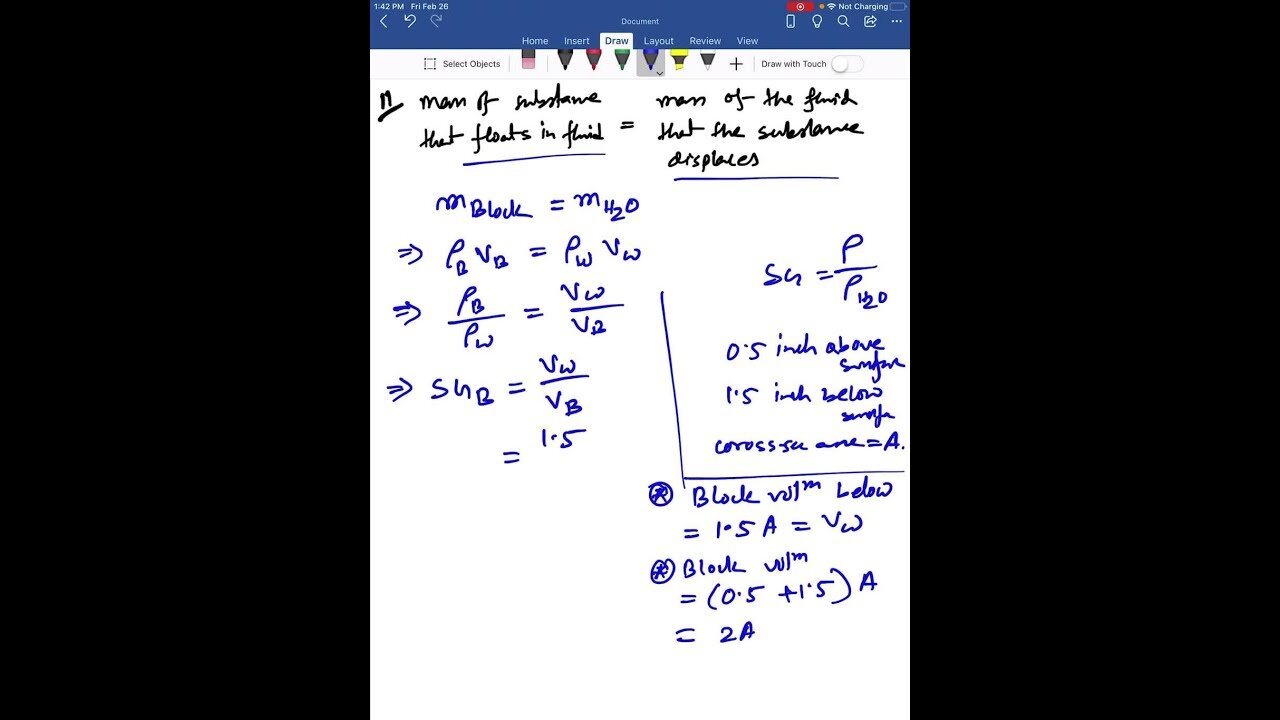 1:42 PM Fri Feb 26
Not Charging
Document
Home Insert Draw Layout Review View
Select Objects
Draw with Touch
mass of substance
that floats in fluid = mass of the fluid
that the substance
displaces
m Block = m H2O
⇒ ρB VB = ρW VW
⇒ ρB/ρW = VW/VB
⇒ SGB = VW/VB
= 1.5
SG = ρ/ρH2O
0.5 inch above
surface
1.5 inch below
surface
cross-sec area = A.
⊛ Block volm below
= 1.5 A = VW
⊛ Block volm
= (0.5 + 1.5) A
= 2A